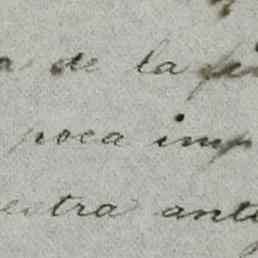 de la
poca imp
estra anti